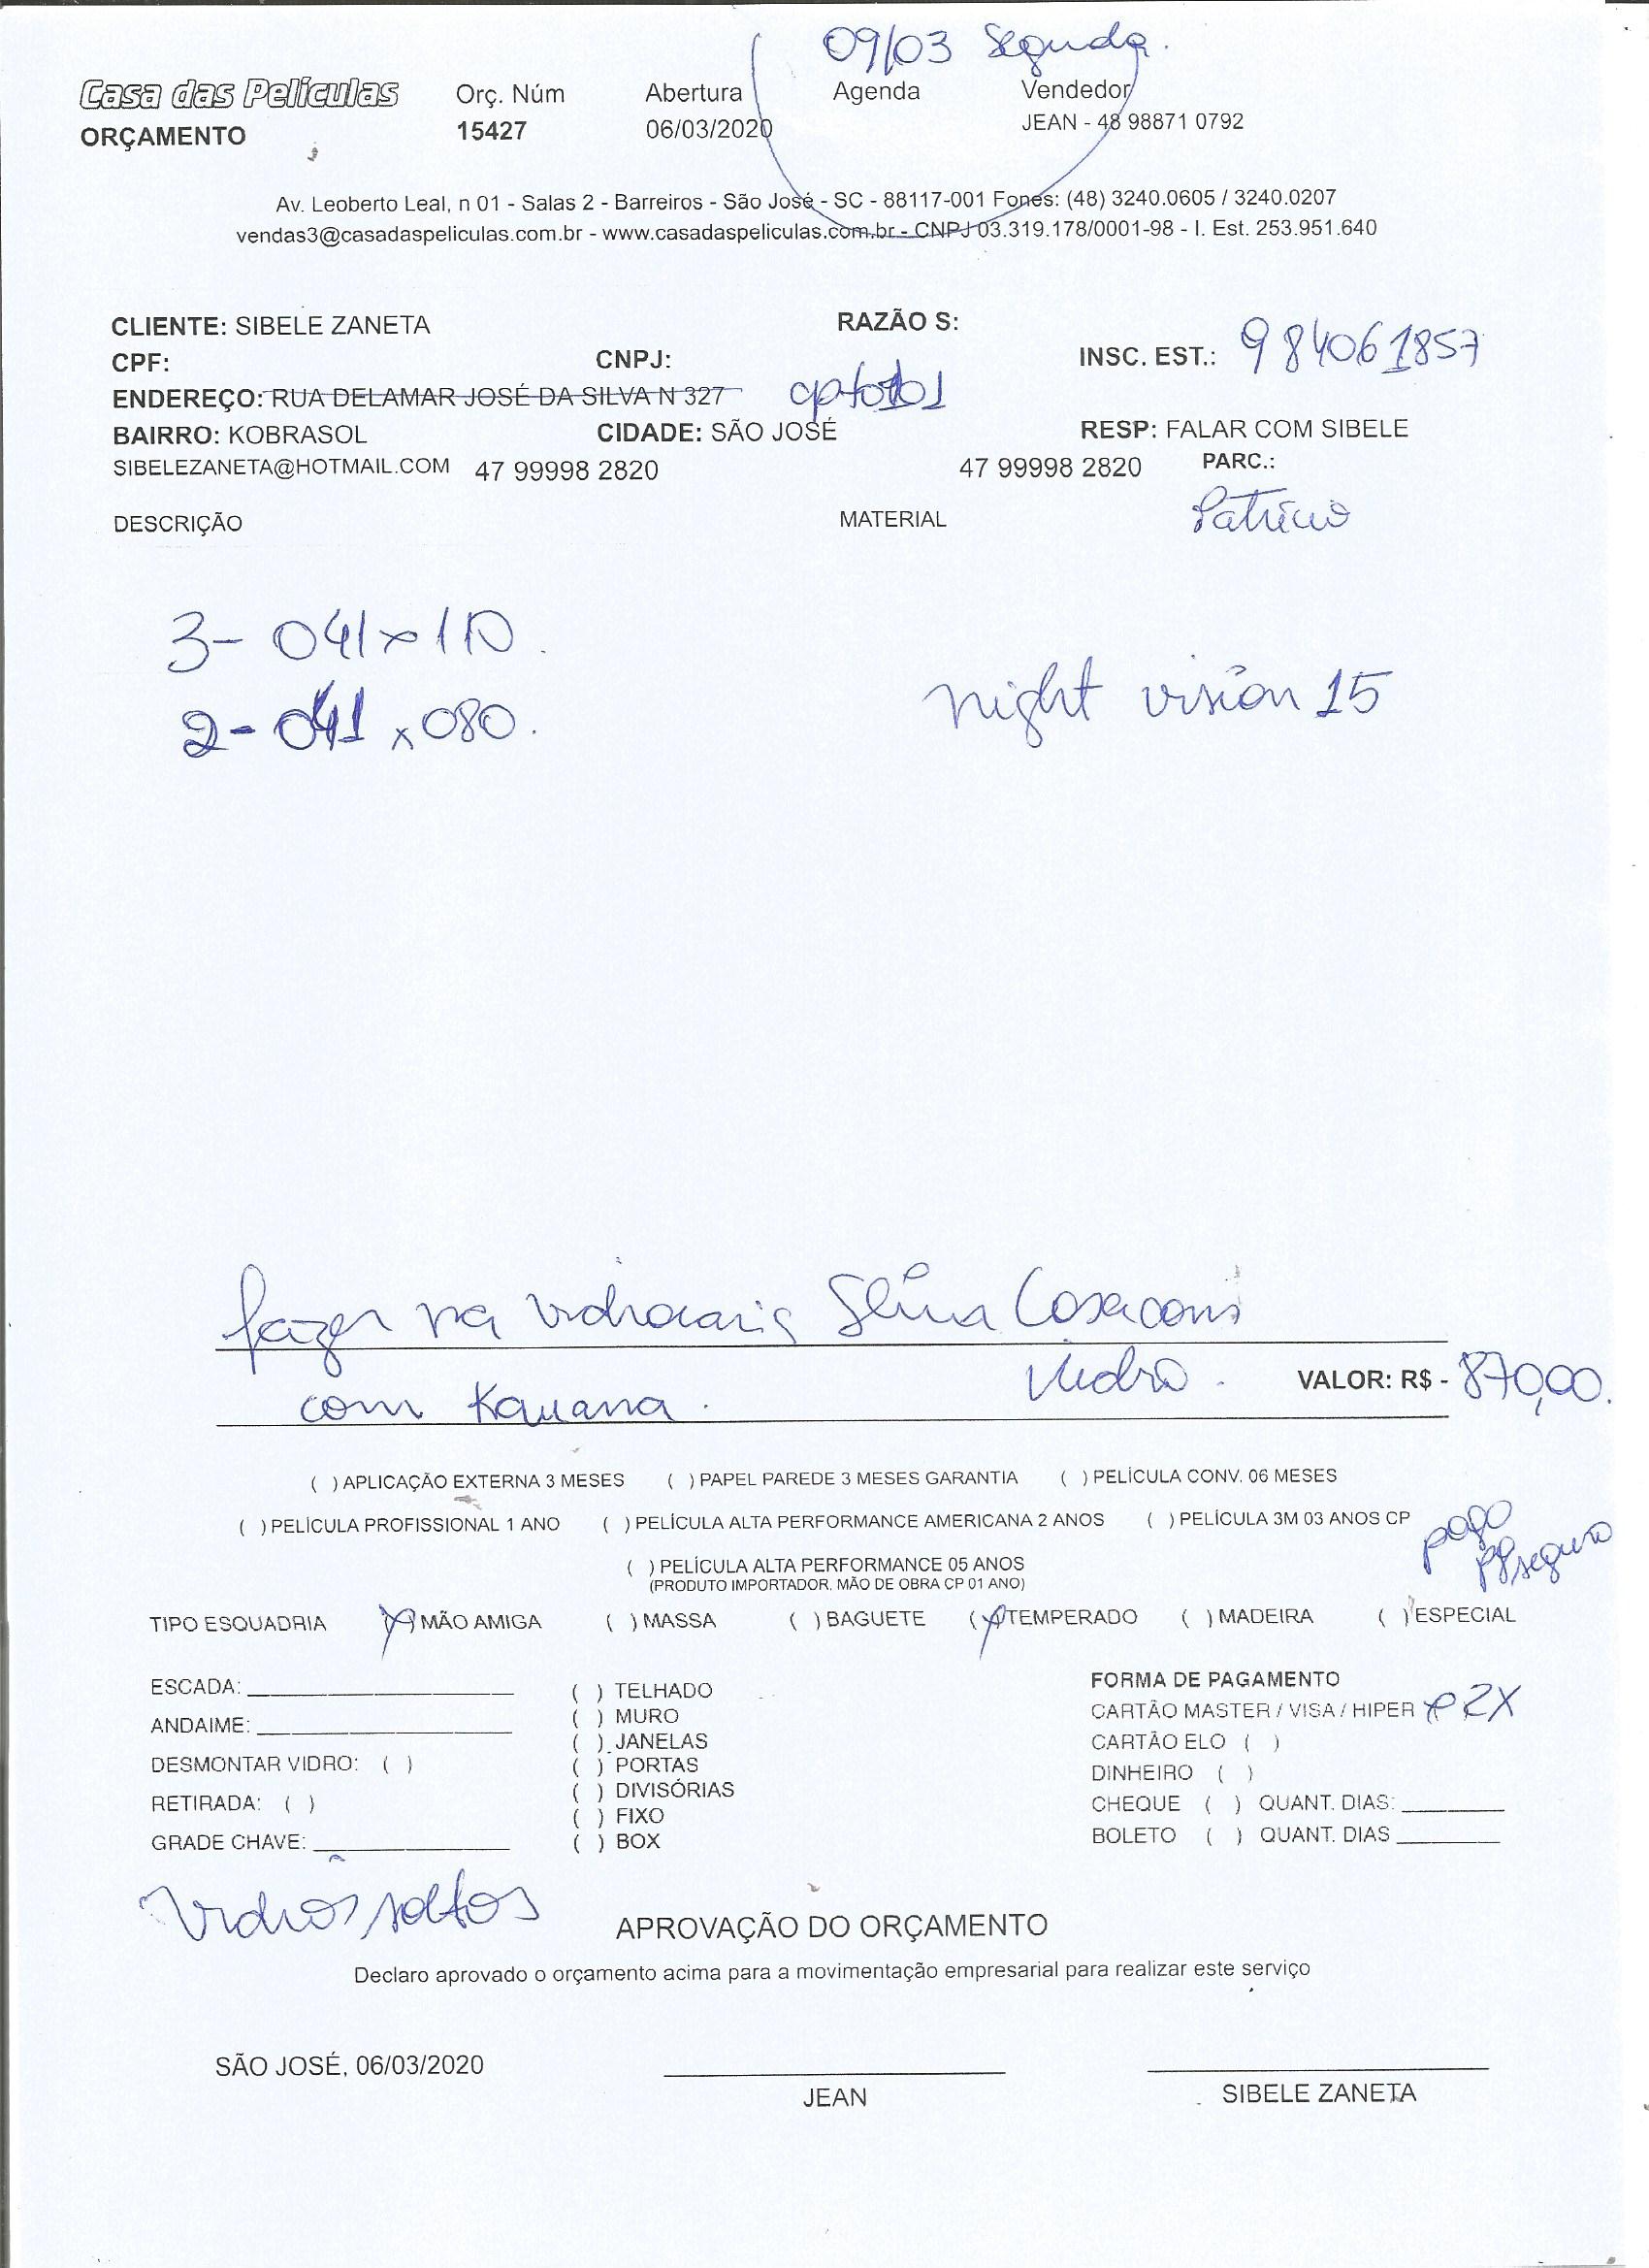 09/03 Segunda.
Casa das Películas Orç. Núm Abertura Agenda Vendedor
ORÇAMENTO 15427 06/03/2020 JEAN - 48 98871 0792
Av. Leoberto Leal, n 01 - Salas 2 - Barreiros - São José - SC - 88117-001 Fones: (48) 3240.0605 / 3240.0207
vendas3@casadaspeliculas.com.br - www.casadaspeliculas.com.br - CNPJ 03.319.178/0001-98 - I. Est. 253.951.640
CLIENTE: SIBELE ZANETA RAZÃO S:
CPF: CNPJ: INSC. EST.: 984061857
ENDEREÇO: RUA DELAMAR JOSÉ DA SILVA N 327
BAIRRO: KOBRASOL CIDADE: SÃO JOSÉ RESP: FALAR COM SIBELE
SIBELEZANETA@HOTMAIL.COM 47 99998 2820 47 99998 2820 PARC.:
DESCRIÇÃO MATERIAL Patricio
3- 041x110.
2- 041 x 080. night vision 15
fazer na vidraçaria
com Kauana. Vidro. VALOR: R$ - 870,00.
( ) APLICAÇÃO EXTERNA 3 MESES ( ) PAPEL PAREDE 3 MESES GARANTIA ( ) PELÍCULA CONV. 06 MESES
( ) PELÍCULA PROFISSIONAL 1 ANO ( ) PELÍCULA ALTA PERFORMANCE AMERICANA 2 ANOS ( ) PELÍCULA 3M 03 ANOS CP
pago
( ) PELÍCULA ALTA PERFORMANCE 05 ANOS
(PRODUTO IMPORTADOR. MÃO DE OBRA CP 01 ANO)
TIPO ESQUADRIA (X) MÃO AMIGA ( ) MASSA ( ) BAGUETE (X) TEMPERADO ( ) MADEIRA ( ) ESPECIAL
ESCADA: ( ) TELHADO FORMA DE PAGAMENTO
ANDAIME: ( ) MURO CARTÃO MASTER / VISA / HIPER 2X
( ) JANELAS CARTÃO ELO ( )
DESMONTAR VIDRO: ( ) ( ) PORTAS DINHEIRO ( )
RETIRADA: ( ) ( ) DIVISÓRIAS CHEQUE ( ) QUANT. DIAS:
( ) FIXO BOLETO ( ) QUANT. DIAS
GRADE CHAVE: ( ) BOX
Vidros soltos
APROVAÇÃO DO ORÇAMENTO
Declaro aprovado o orçamento acima para a movimentação empresarial para realizar este serviço
SÃO JOSÉ, 06/03/2020 JEAN SIBELE ZANETA